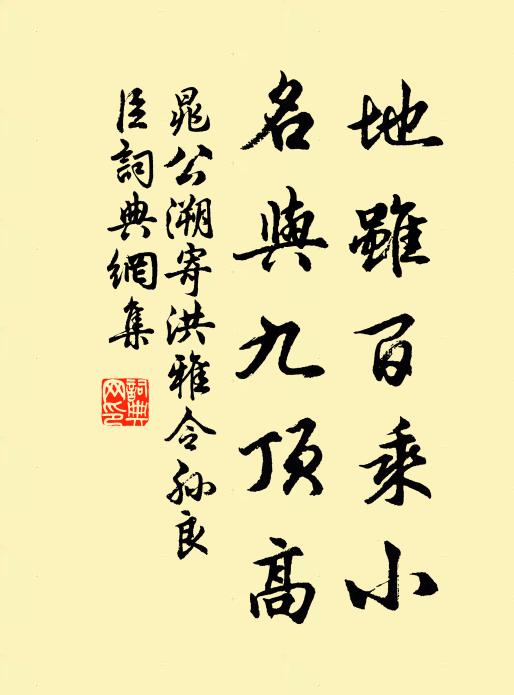 地雖百乘小
名與九頂高
晁公溯寄洪雅令孫良
臣詞典網集
詞典網印